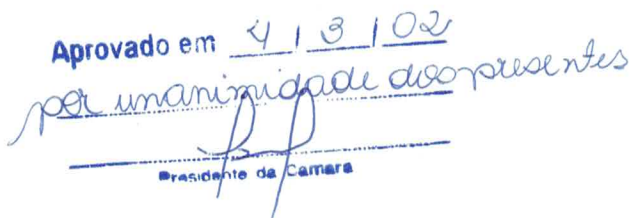 Aprovado em 4 / 3 / 02
por unanimidade dos presentes
Presidente da Camara